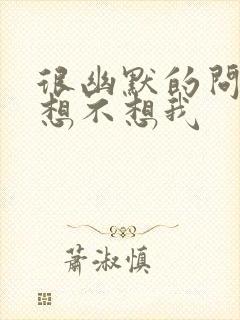 很幽默的問
想不想我
蕭淑慎